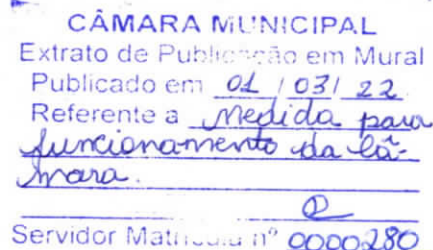 CÂMARA MUNICIPAL
Extrato de Publicação em Mural
Publicado em 01 / 03 / 22
Referente a Medida para
funcionamento da Câ-
mara.
Servidor Matrícula nº 0000280